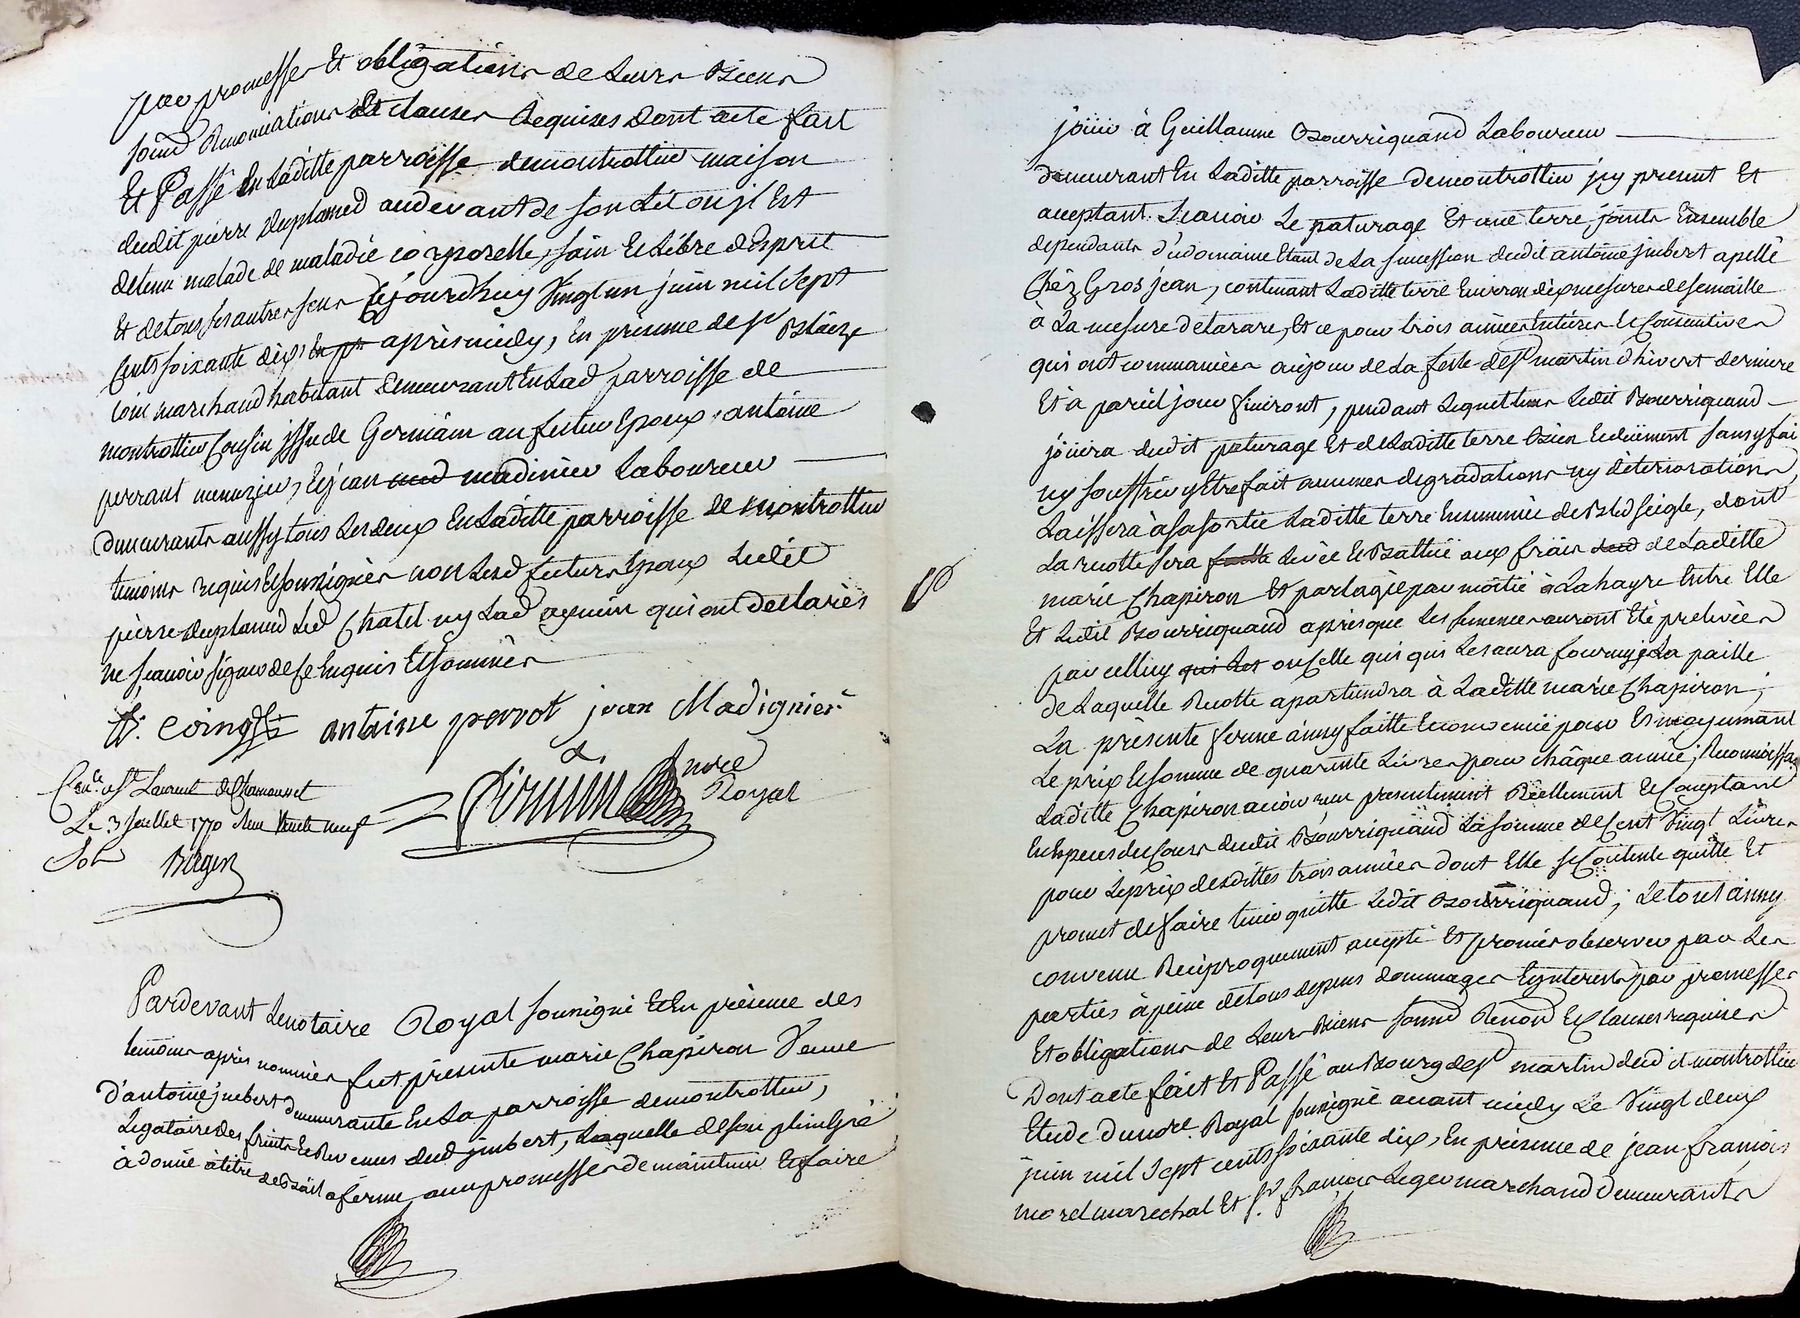 par promesses Et obligations de Leurs Biens
soumis Renonciations Et clauses Requises Dont acte fait
Et Passé En Laditte parroisse demontrottier maison
dudit pierre Duplamud audevant de son Lit ou jl Est
detenu malade de maladie corporelle, sain Et Libre d'Esprit
Et detous ses autres sens Cejourdhuy Vingt un juin mil sept
Cents soixante dix, En pr apres midy, En presence de sr Blaize
coin marchand habitant demeurant En Lad parroisse de
montrottier Cousin jssu de Germain aufuteur Epoux, antoine
perraut menuzier, Et jean aud madinier Laboureur
Demeurants aussy tous Les deux En Laditte parroisse de montrottier
temoins requis Et soussignés non Lesd futurs Epoux Ledit
pierre duplamud Led Chatel ny Lad que ont declarés
ne scavoir signer dece Enquis Et sommés
B. Coing antoine perrot jean Madignier
nore
Royal
Con.le à St Laurent de Chamousset
Le 3 juillet 1770 Reçu trente neuf
Sols
Bregen
Pardevant Lenotaire Royal soussigné Et En présence des
temoins apres nommés fut presente marie Chapiron Veuve
d'antoine jmbert demeurante En La parroisse demontrottier,
Legataire des fruits Et Revenus dud jmbert, Laquelle deson plein gré
à donné à titre de Bail aferme, avec promesses de maintenir Et faire
jouir à Guillaume Bourriquand Laboureur
demeurant En Laditte parroisse demontrottier jcy present Et
aceptant. Scavoir Le paturage Et une terre joints Ensemble
dependants d'udomaine Etant de La succession dudit antoine jmbert apellé
Chez Gros jean, contenant Laditte terre Environ dix mesures de semaille
à La mesure detarare, Et ce pour trois années Entieres Et Consecutives
qui ont commancées aujour de La feste de St martin d'hivert derniere
Et à pareil jour finiront, pendant Lequel tems Ledit Bourriquand
jouira dudit paturage Et de Laditte terre Bien Et duement sans y fai
ny souffrir y Etre fait aucunes degradations ny deteriorations,
Laissera à sa sortie Laditte terre Ensemencée de Bled seigle, dont
La recolte sera faitte Levée Et Battue aux frais dud de Laditte
marie Chapiron Et partagée par moitié à Lahayre Entre Elle
Et Ledit Bourriquand apres que Les semences auront Eté prelevées
par celluy qui Les ou Celle qui qui Les aura fourny; La paille
de Laquelle Recolte apartiendra à Laditte marie Chapiron;
La presente ferme ainsy faitte Et convenue pour Et moyennant
Le prix Et somme de quarante Livres pour châque année; Reconnoissan
Laditte Chapiron avoir reçu presentement Réellement Et Comptant
En Especes du Cours dudit Bourriquand La somme de Cent Vingt Livres
pour Le prix desdittes trois années dont Elle se Contente quitte Et
promet de faire tenir quitte Ledit Bourriquand; Le tout ainsy
convenu Reciproquement accepté Et promis observer par Les
parties à peine detous depens dommages Et jnterests par promesses
Et obligations de Leurs Biens soumd Renond Et Clauses requises
Dont acte fait Et Passé au Bourg de St martin dudit montrottier
Etude du nore Royal soussigné avant midy Le Vingt deux
juin mil sept cents soixante dix, En présence de jean francois
morel marechal Et Sr francois Leger marchand demeurants